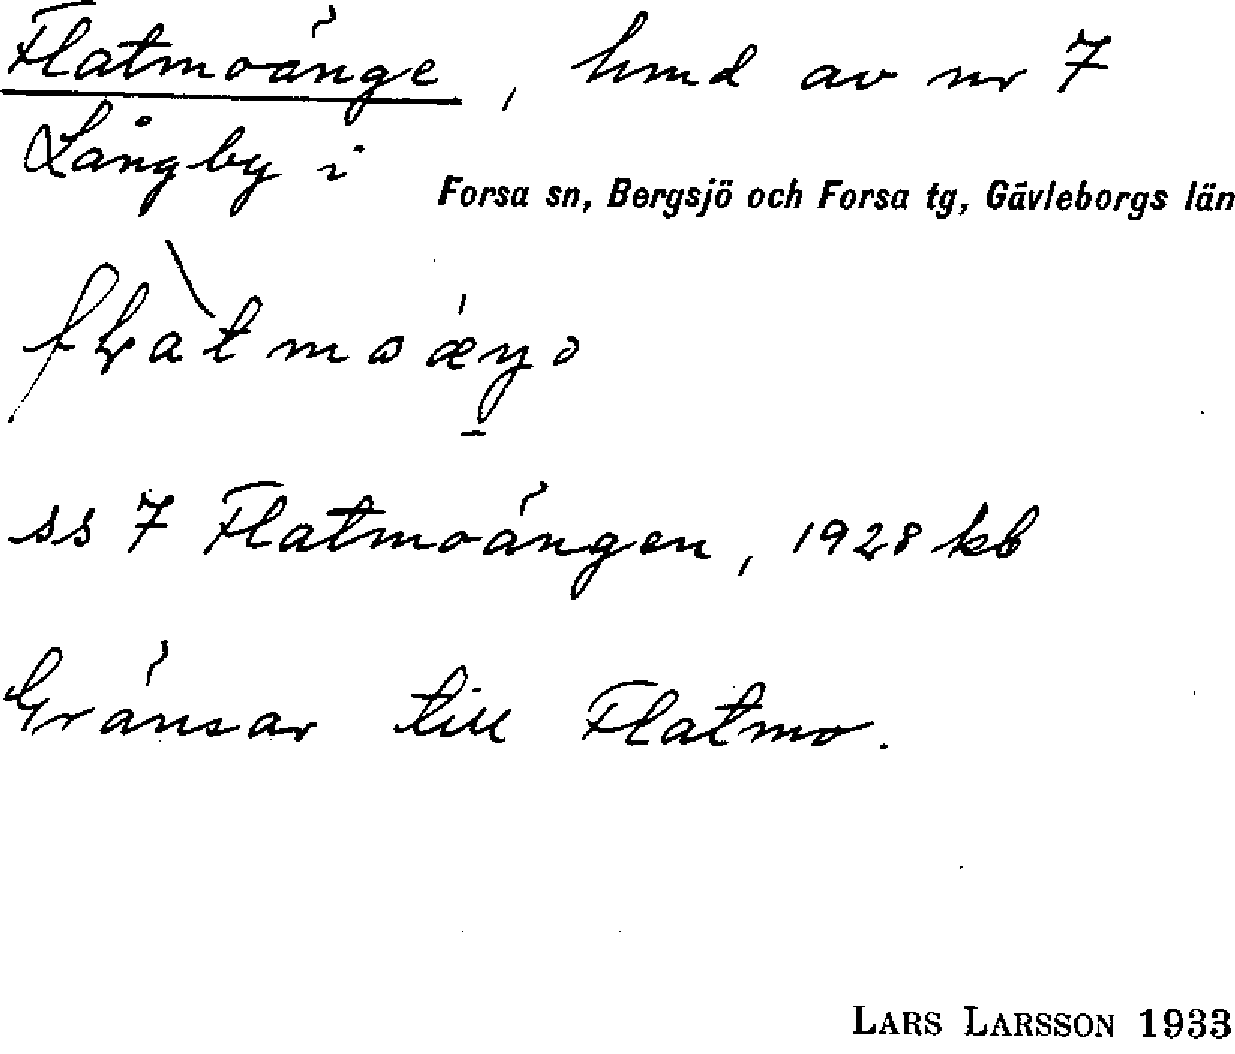 Flatmoänge, hmd av nr 7
Långby i
Forsa sn, Bergsjö och Forsa tg, Gävleborgs län
ss 7 Flatmoängen, 1928 kb
Gränsar till Flatmo.
LARS LARSSON 1933